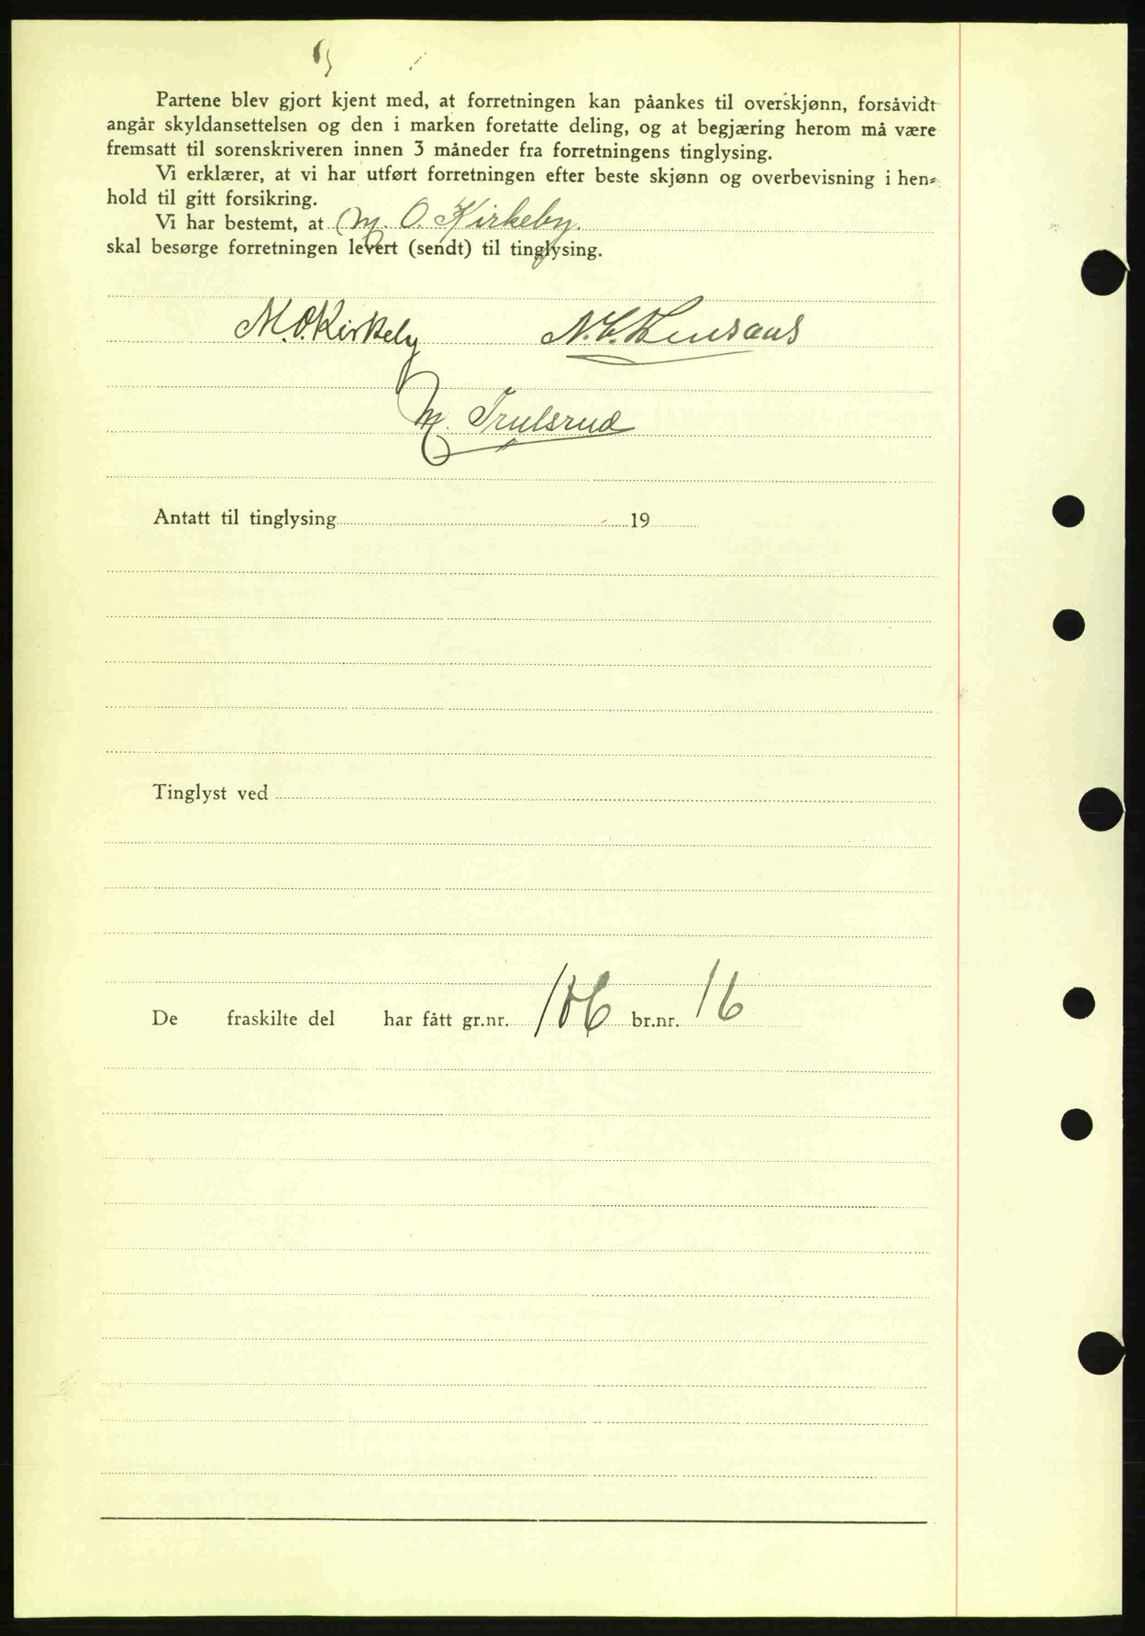 Partene blev gjort kjent med, at forretningen kan påankes til overskjønn, forsåvidt
angår skyldansettelsen og den i marken foretatte deling, og at begjæring herom må være
fremsatt til sorenskriveren innen 3 måneder fra forretningens tinglysing.
Vi erklærer, at vi har utført forretningen efter beste skjønn og overbevisning i hen-
hold til gitt forsikring.
Vi har bestemt, at M. O. Kirkeby.
skal besørge forretningen levert (sendt) til tinglysing.
M. O. Kirkeby N. C.
M. Trulsrud
Antatt til tinglysing 19
Tinglyst ved
De fraskilte del har fått gr.nr. 106 br.nr. 16